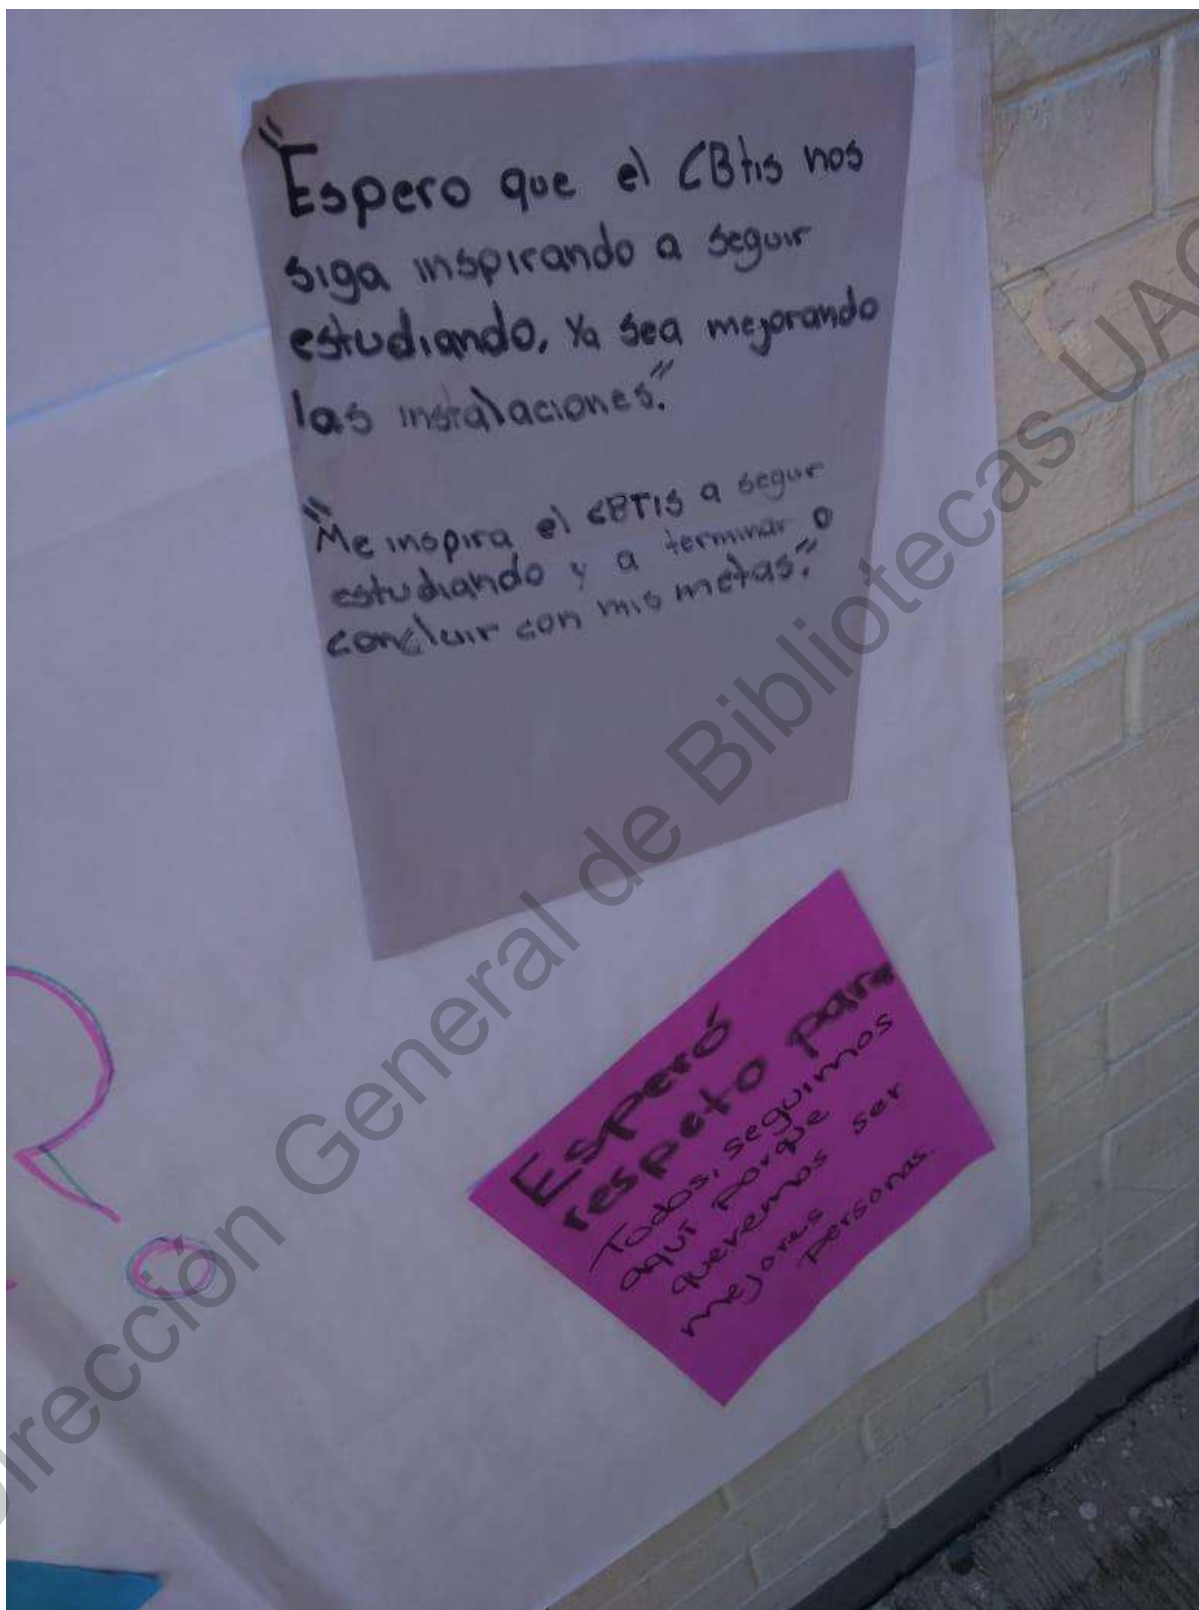 "Espero que el CBtis nos
siga inspirando a seguir
estudiando, Ya sea mejorando
las instalaciones."
"Me inspira el CBTIS a seguir
estudiando y a terminar o
concluir con mis metas."
Esperó
respeto para
Todos, seguimos
aquí porque
queremos ser
mejores
personas.
?
Dirección General de Bibliotecas UAQ